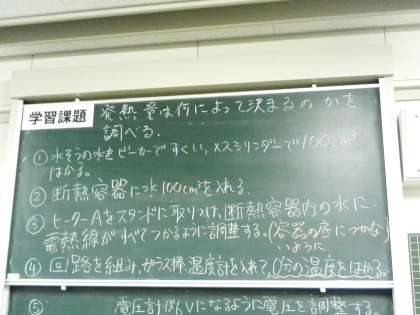 学習課題
発熱量は何によって決まるのかを
調べる.
① 水そうの水をビーカーですくい, メスシリンダーで100cm³
はかる。
② 断熱容器に水100cm³を入れる.
③ ヒーターAをスタンドに取りつけ, 断熱容器内の水に
電熱線がすべてつかるように調整する。(容器の底につかな
いように
④ 回路を組み, ガラス棒温度計を入れて, 0分の温度をはかる。
⑤ 電圧計が6Vになるように電圧を調整する。